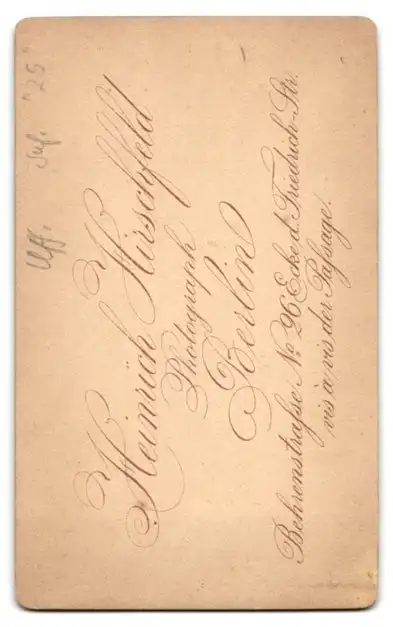 Uff. Inf. "25"
Heinrich Hirschfeld
Photograph
Berlin
Behrenstraſse No 26 Ecke d. Friedrich-Str.
vis à vis der Paſsage.